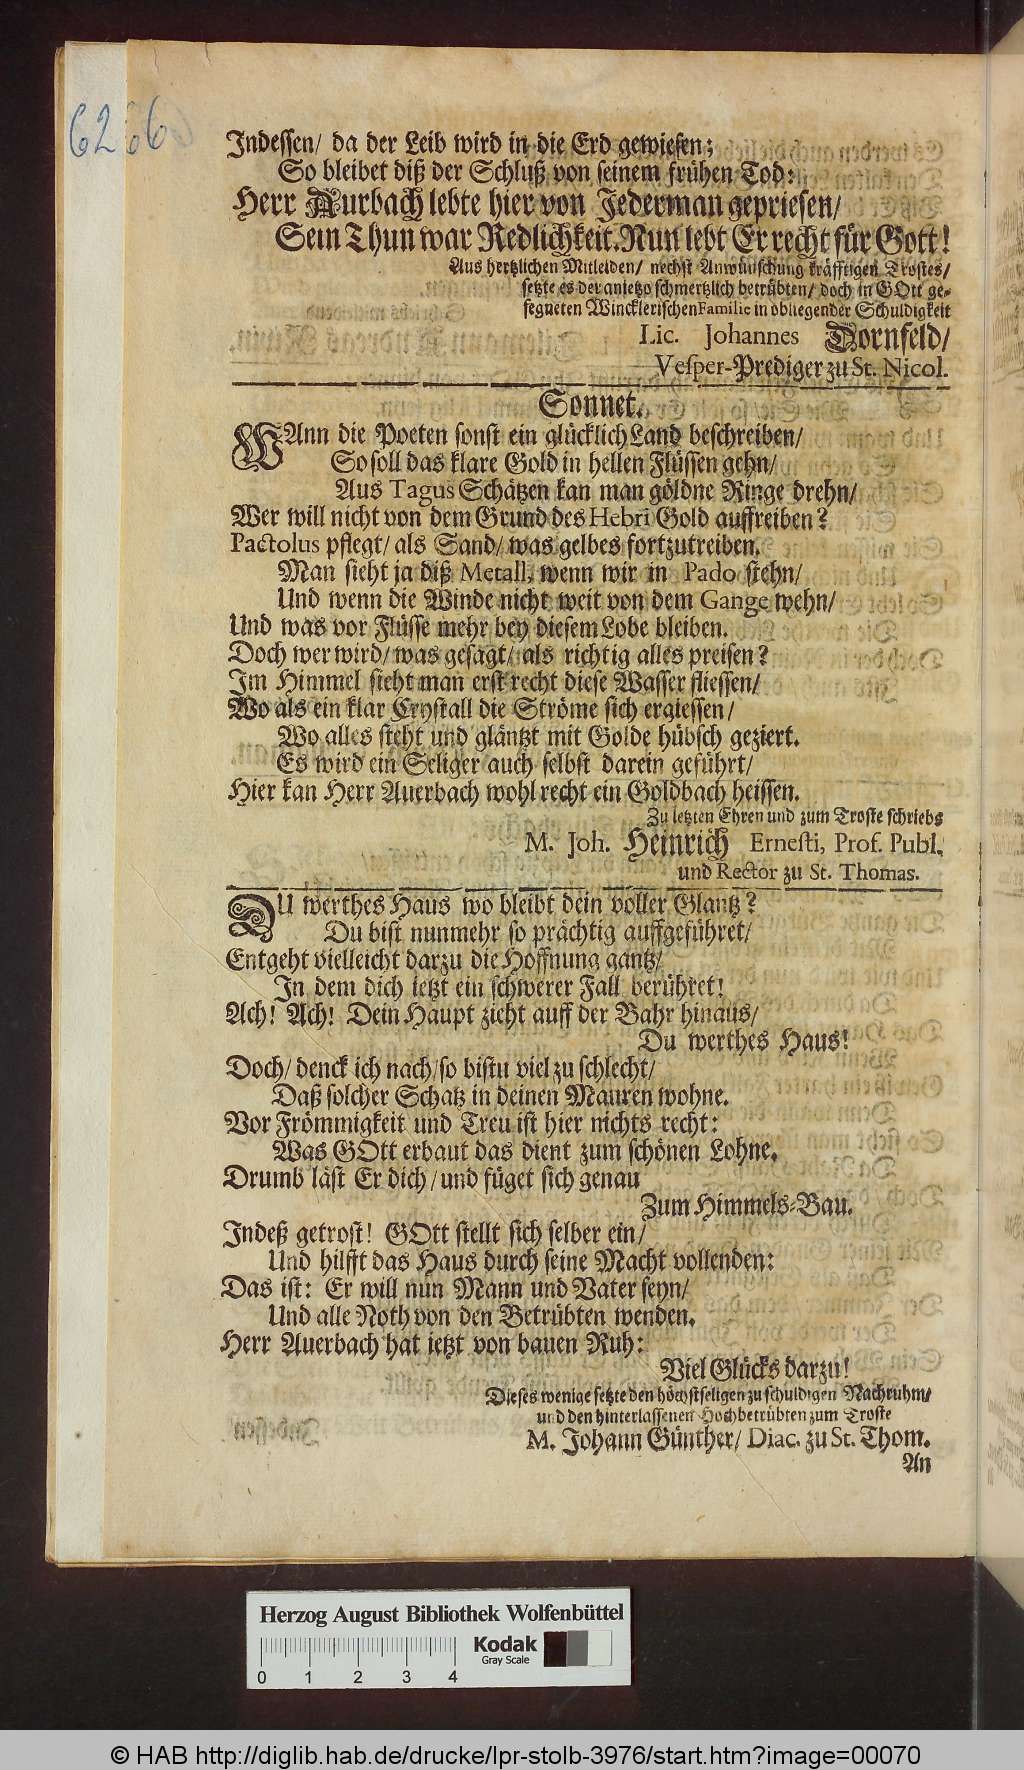 6266
Indessen/ da der Leib wird in die Erd gewiesen;
So bleibet diß der Schluß von seinem frühen Tod:
Herr Aurbach lebte hier von Jederman gepriesen/
Sein Thun war Redlichkeit. Nun lebt Er recht für Gott!
Aus hertzlichen Mitleiden/ nechst Anwünschung kräfftigen Trostes/
setzte es der anietzo schmertzlich betrübten/ doch in GOtt ge-
segneten Wincklerischen Familie in obliegender Schuldigkeit
Lic. Johannes Dornfeld/
Vesper-Prediger zu St. Nicol.
Sonnet.
WAnn die Poeten sonst ein glücklich Land beschreiben/
So soll das klare Gold in hellen Flüssen gehn/
Aus Tagus Schätzen kan man göldne Ringe drehn/
Wer will nicht von dem Grund des Hebri Gold auffreiben?
Pactolus pflegt/ als Sand/ was gelbes fortzutreiben.
Man sieht ja diß Metall, wenn wir in Pado stehn/
Und wenn die Winde nicht weit von dem Gange wehn/
Und was vor Flüsse mehr bey diesem Lobe bleiben.
Doch wer wird/ was gesagt/ als richtig alles preisen?
Im Himmel sieht man erst recht diese Wasser fliessen/
Wo als ein klar Crystall die Ströme sich ergiessen/
Wo alles steht und gläntzt mit Golde hübsch geziert.
Es wird ein Seliger auch selbst darein geführt/
Hier kan Herr Auerbach wohl recht ein Goldbach heissen.
Zu letzten Ehren und zum Troste schriebs
M. Joh. Heinrich Ernesti, Prof. Publ.
und Rector zu St. Thomas.
DU werthes Haus wo bleibt dein voller Glantz?
Du bist nunmehr so prächtig auffgeführet/
Entgeht vielleicht darzu die Hoffnung gantz/
In dem dich ietzt ein schwerer Fall berühret!
Ach! Ach! Dein Haupt zieht auff der Bahr hinaus/
Du werthes Haus!
Doch/ denck ich nach/ so bistu viel zu schlecht/
Daß solcher Schatz in deinen Mauren wohne.
Vor Frömmigkeit und Treu ist hier nichts recht:
Was GOtt erbaut das dient zum schönen Lohne.
Drumb läst Er dich/ und füget sich genau
Zum Himmels-Bau.
Indeß getrost! GOtt stellt sich selber ein/
Und hilfft das Haus durch seine Macht vollenden:
Das ist: Er will nun Mann und Vater seyn/
Und alle Noth von den Betrübten wenden.
Herr Auerbach hat ietzt von bauen Ruh:
Viel Glücks darzu!
Dieses wenige setzte den höchstseligen zu schuldigen Nachruhm/
und den hinterlassenen Hochbetrübten zum Troste
M. Johann Günther/ Diac. zu St. Thom.
An
Herzog August Bibliothek Wolfenbüttel
Kodak
Gray Scale
0 1 2 3 4
© HAB http://diglib.hab.de/drucke/lpr-stolb-3976/start.htm?image=00070